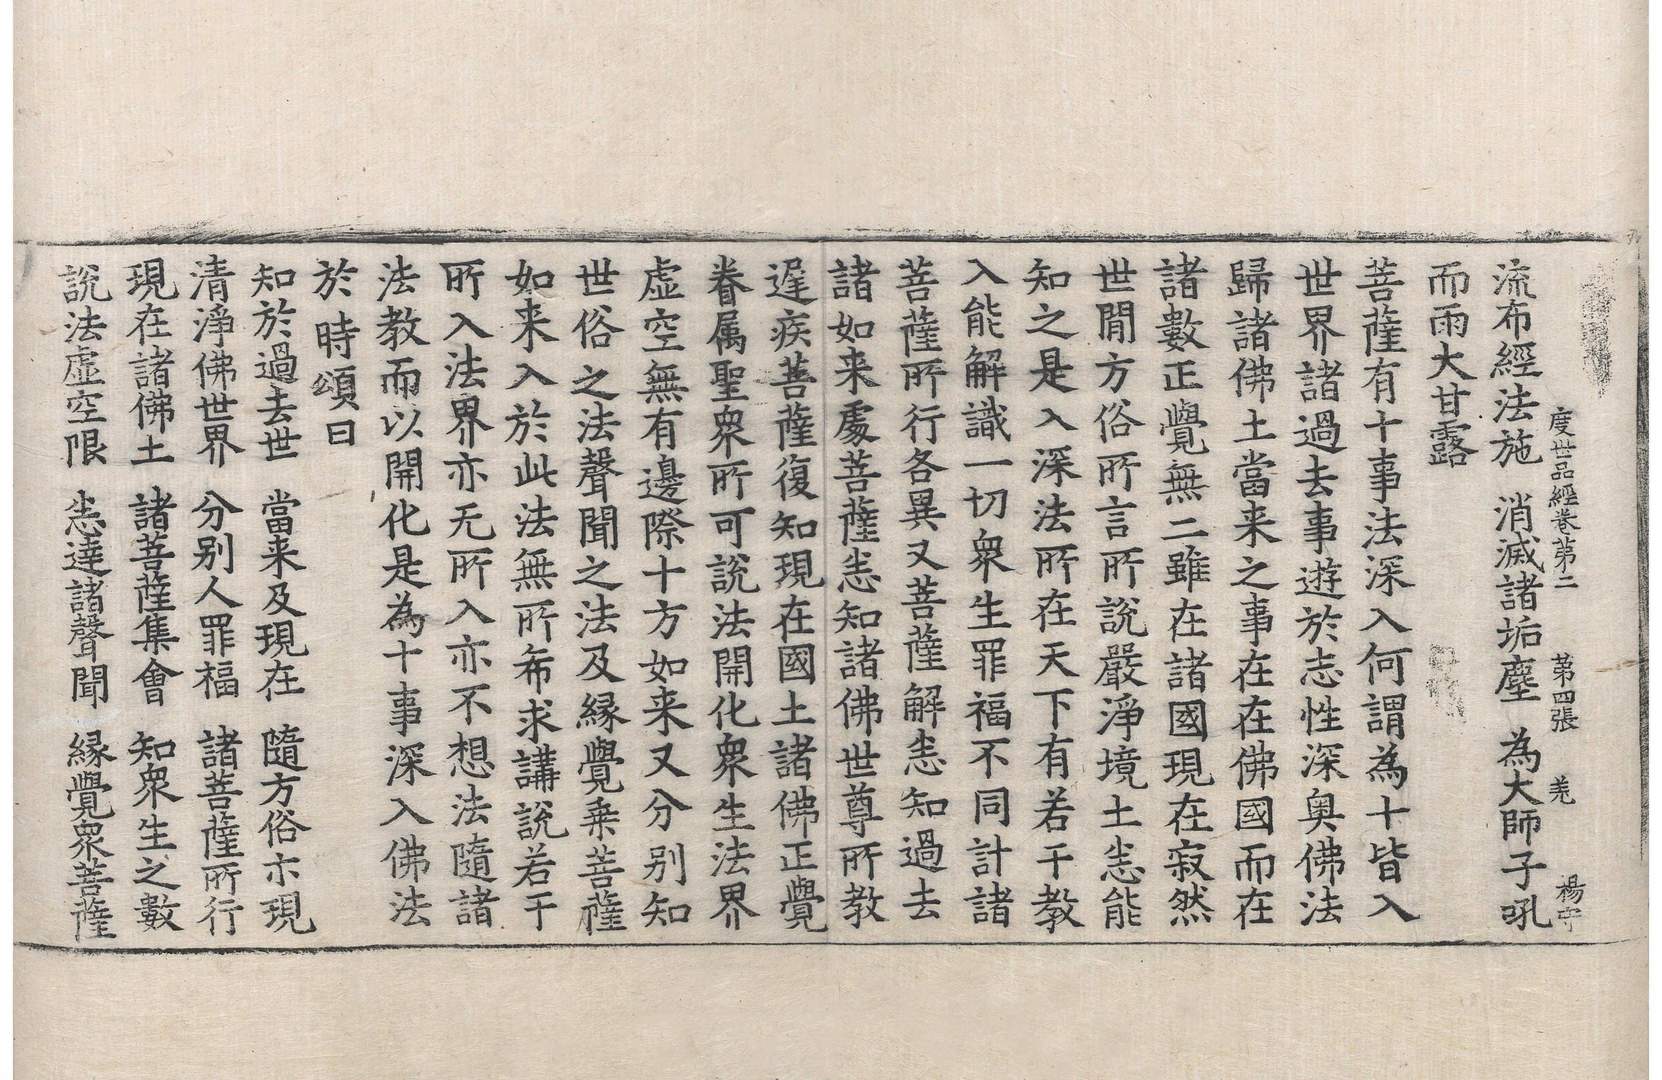 度世品經卷第二　第四張　羗　楊守
流布經法施　消滅諸垢塵　為大師子吼
而雨大甘露
菩薩有十事法深入何謂為十皆入
世界諸過去事遊於志性深奧佛法
歸諸佛土當来之事在在佛國而在
諸數正覺無二雖在諸國現在寂然
世間方俗所言所說嚴淨境土悉能
知之是入深法所在天下有若干教
入能解識一切衆生罪福不同計諸
菩薩所行各異又菩薩解悉知過去
諸如来處菩薩悉知諸佛世尊所教
遅疾菩薩復知現在國土諸佛正覺
眷属聖衆所可說法開化衆生法界
虛空無有邊際十方如来又分別知
世俗之法聲聞之法及縁覺乗菩薩
如来入於此法無所布求講說若干
所入法界亦无所入亦不想法隨諸
法教而以開化是為十事深入佛法
於時頌曰
知於過去世　當来及現在　隨方俗亦現
清淨佛世界　分別人罪福　諸菩薩所行
現在諸佛土　諸菩薩集會　知衆生之數
說法虛空限　悉達諸聲聞　縁覺衆菩薩